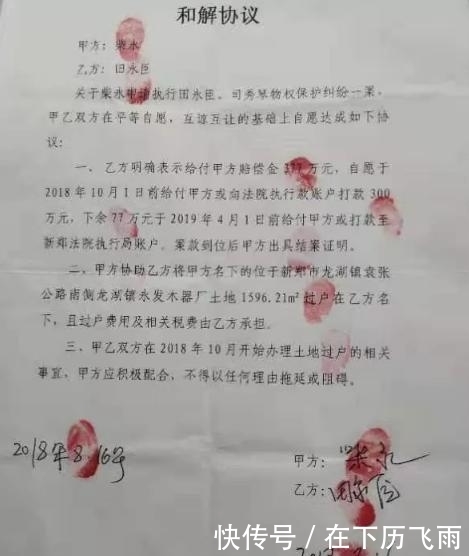 和解协议
甲方：柴永
乙方：田永臣
关于柴永申请执行田永臣、司秀琴物权保护纠纷一案，
甲乙双方在平等自愿，互谅互让的基础上自愿达成如下协
议：
一、乙方明确表示给付甲方赔偿金 377 万元，自愿于
2018 年 10 月 1 日前给付甲方或向法院执行款账户打款 300
万元，下余 77 万元于 2019 年 4 月 1 日前给付甲方或打款至
新郑法院执行局账户。案款到位后甲方出具结案证明。
二、甲方协助乙方将甲方名下的位于新郑市龙湖镇袁张
公路南侧龙湖镇永发木器厂土地 1596.21m² 过户在乙方名
下，且过户费用及相关税费由乙方承担。
三、甲乙双方在 2018 年 10 月开始办理土地过户的相关
事宜，甲方应积极配合，不得以任何理由拖延或阻碍。
2018年8.16号
甲方：柴永
乙方：田永臣
快传号 / 在下历飞雨